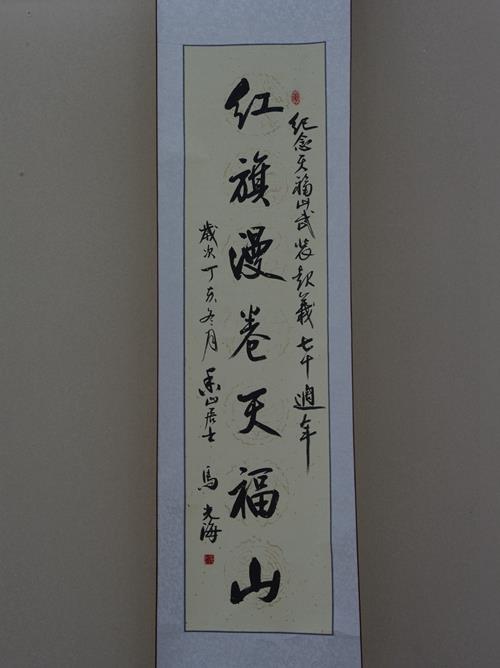 纪念天福山武装起义七十週年
红旗漫卷天福山
岁次丁亥冬月 山居士 馬光海